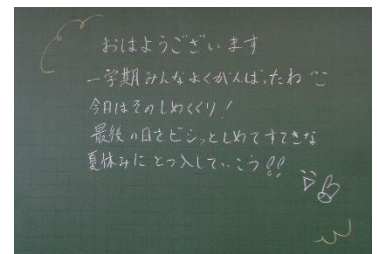 おはようございます
一学期みんなよくがんばったね
今日はそのしめくくり!
最後の日をビシッとしめてすてきな
夏休みにとつ入していこう!!